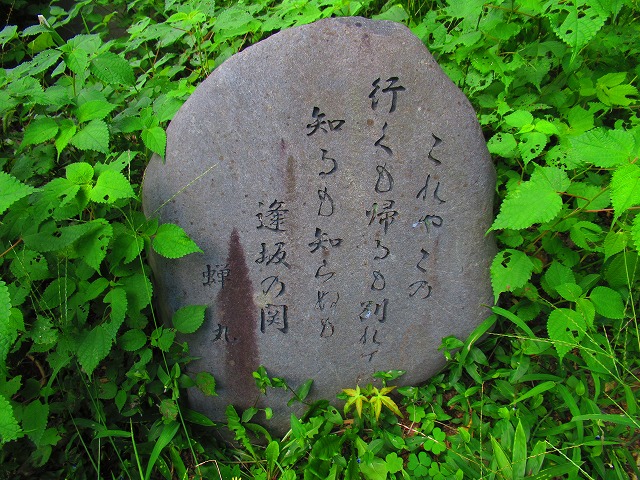 これやこの
行くも帰るも別れて
知るも知らぬも
逢坂の関
蝉丸